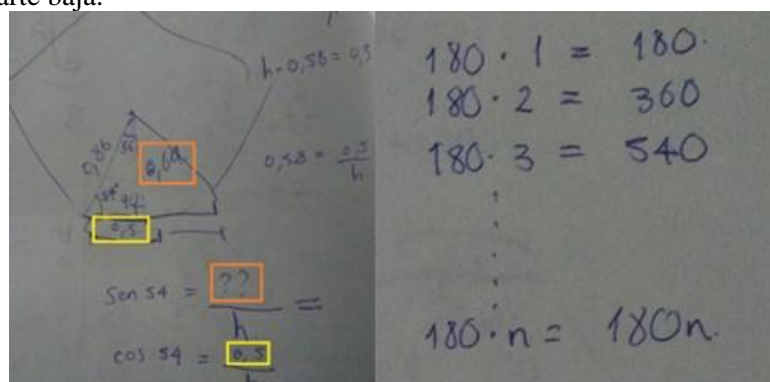 arte baja.
h·0,58 = 0,5
0,86
36
0,68
0,58 = 0,5 / h
54°
90
0,5
Sen 54 = ?? / h =
cos 54 = 0,5 / h
180 · 1 = 180.
180 · 2 = 360
180 · 3 = 540
180 · n = 180n.